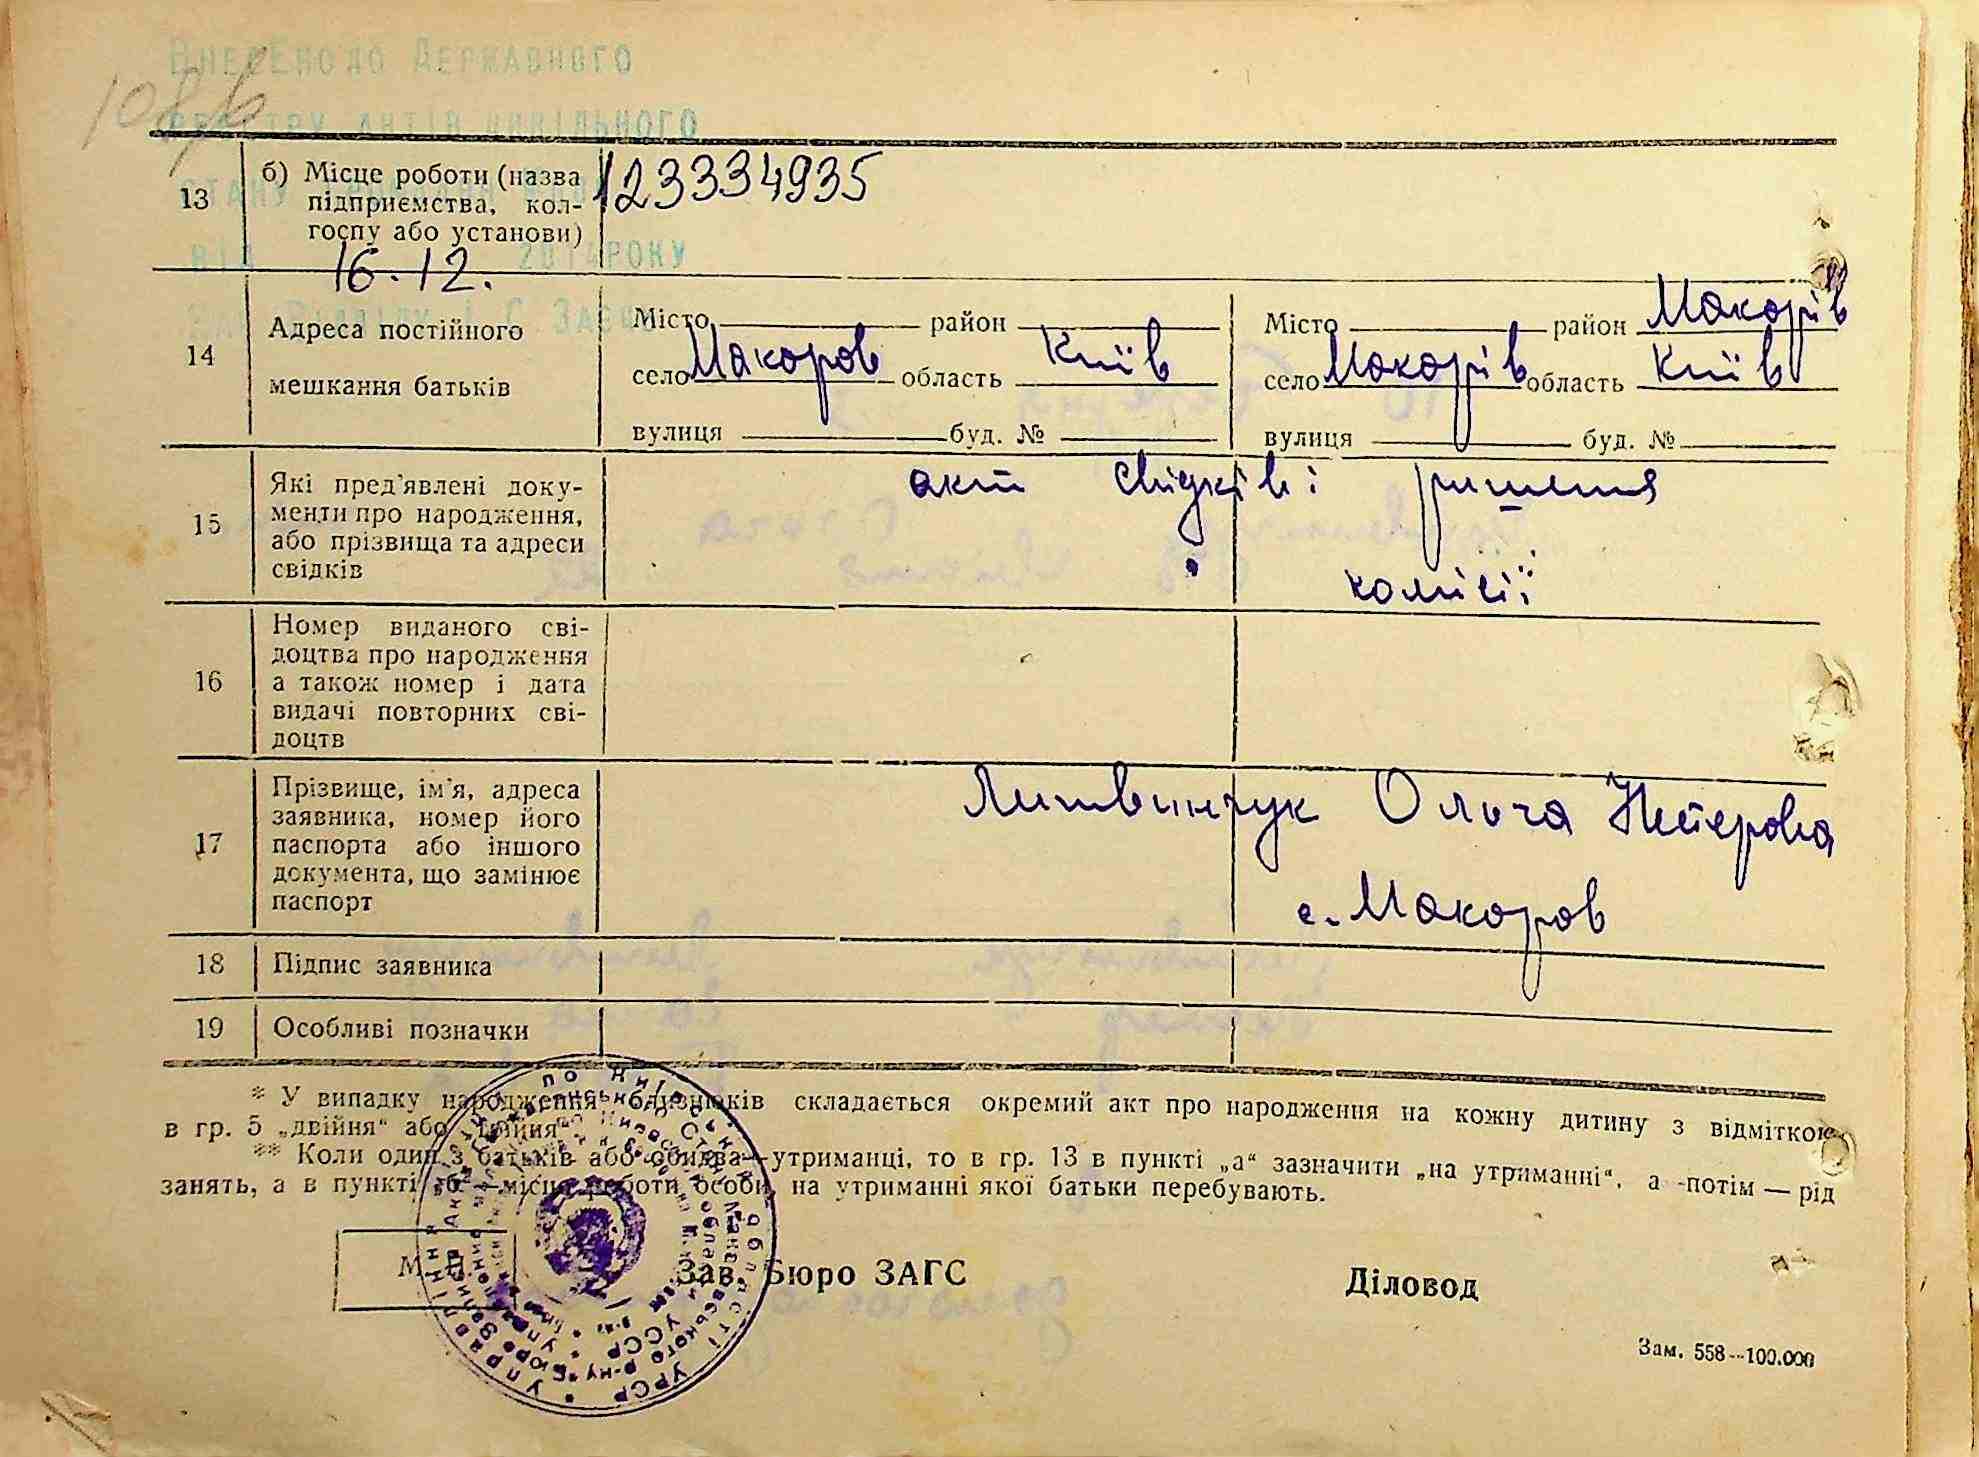 ВнесЕно до Державного
реєстру актів цивільного
123334935
16.12. 2014 РОКУ
13 б) Місце роботи (назва
підприємства, кол-
госпу або установи)
14 Адреса постійного
мешкання батьків
Місто район
село Макоров область Київ
вулиця буд. №
Місто район Макорів
село Макорів область Київ
вулиця буд. №
15 Які пред'явлені доку-
менти про народження,
або прізвища та адреси
свідків
акт свідків і ришення
комісії
16 Номер виданого сві-
доцтва про народження
а також номер і дата
видачі повторних сві-
доцтв
17 Прізвище, ім'я, адреса
заявника, номер його
паспорта або іншого
документа, що замінює
паспорт
Литвинчук Ольга Нестерова
с. Макоров
18 Підпис заявника
19 Особливі позначки
* У випадку народження близнюків складається окремий акт про народження на кожну дитину з відміткою
в гр. 5 „двійня“ або „трійня“
** Коли один з батьків або обидва—утриманці, то в гр. 13 в пункті „а“ зазначити „на утриманні“, а потім — рід
занять, а в пункті „б“—місце роботи особи, на утриманні якої батьки перебувають.
М. П.
Зав. Бюро ЗАГС
Діловод
Зам. 558—100.000